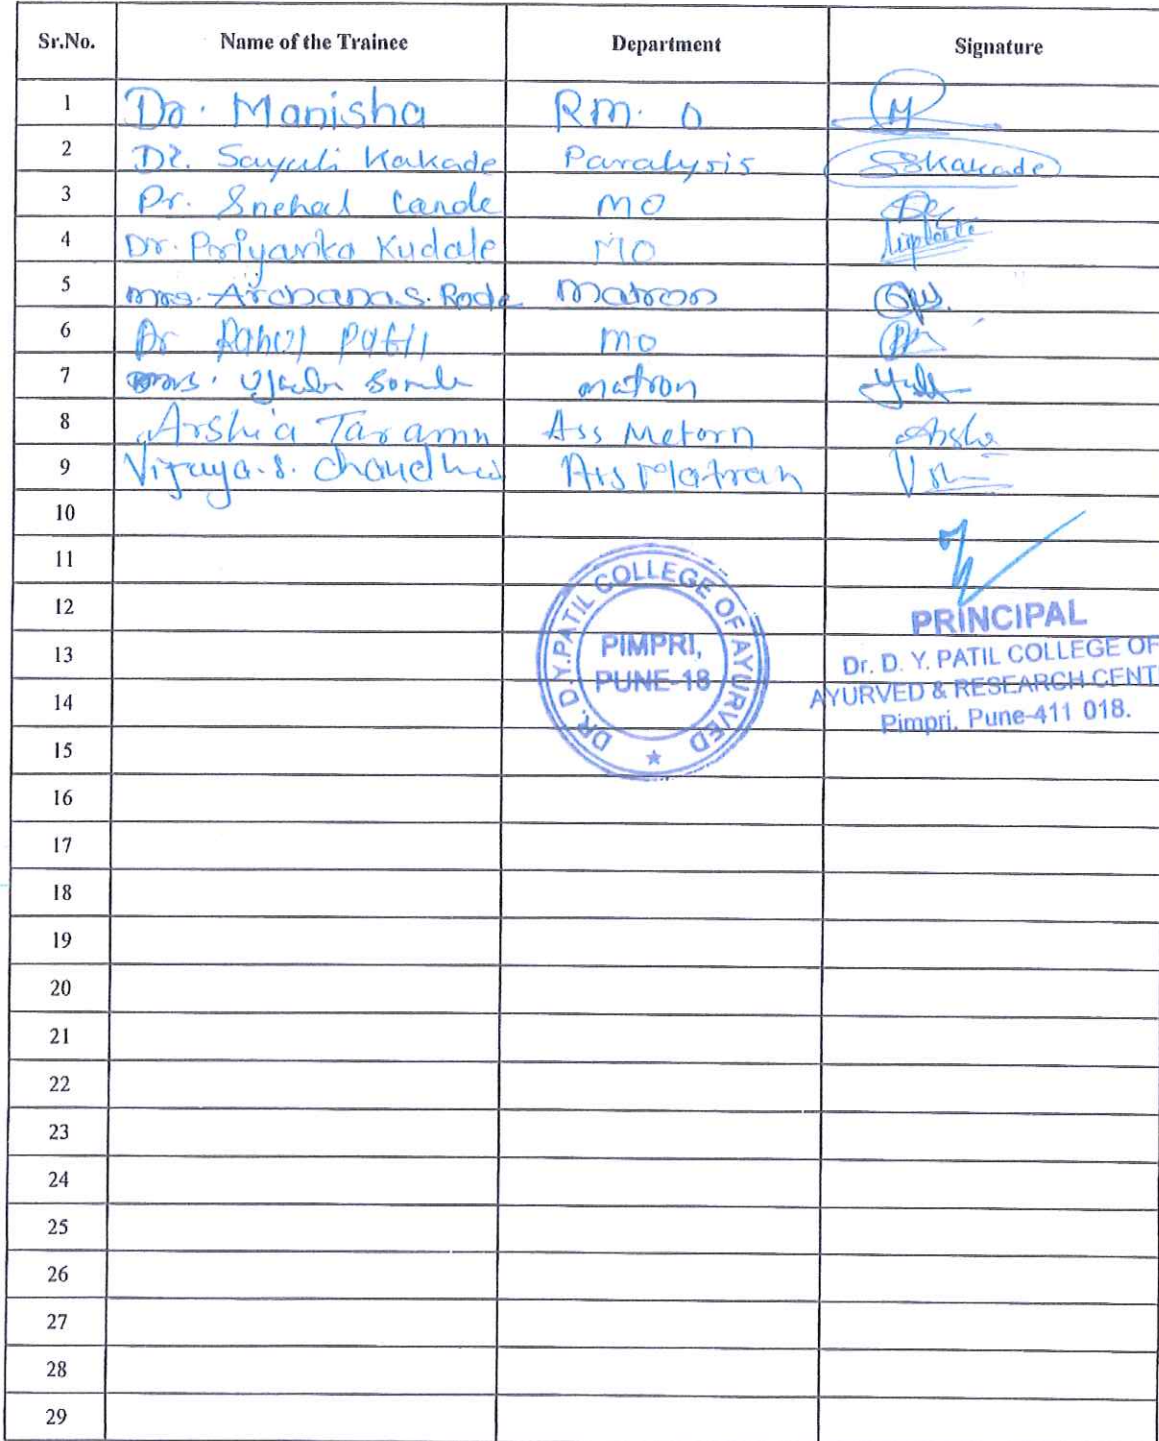 Sr.No. Name of the Trainee Department Signature
1 Dr. Manisha RM. O
2 Dr. Sayuli Kakade Paralysis SSKakade
3 Dr. Snehal MO
4 Dr. Priyanka Kudale MO
5 mrs. Archana S. Rode matron
6 Dr Rahul Patil mo
7 mrs. matron
8 Arshia Taramn Ass Metorn Arshi
9 Vijaya. S. Chaudhari Ass Matran
10
11
12
13
14
15
16
17
18
19
20
21
22
23
24
25
26
27
28
29
DR. D.Y.PATIL COLLEGE OF AYURVED
PIMPRI,
PUNE-18
PRINCIPAL
Dr. D. Y. PATIL COLLEGE OF
AYURVED & RESEARCH CENT
Pimpri, Pune-411 018.